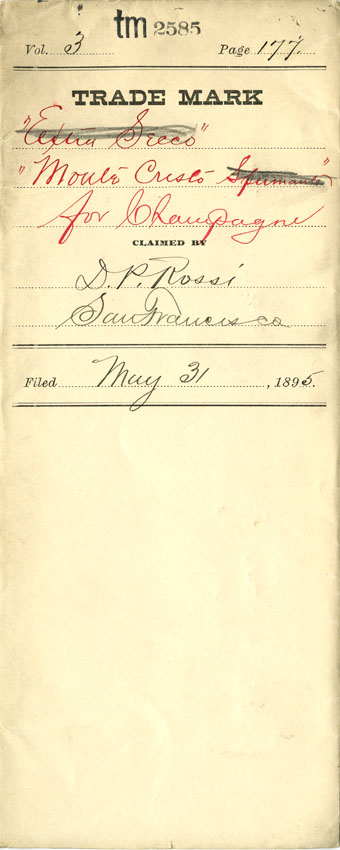 tm 2585
Vol. 3 Page 177.
TRADE MARK
"Extra Secco"
"Monte Cristo Spumante"
for Champagne
CLAIMED BY
D. P. Rossi
San Francisco
Filed May 31, 1895.